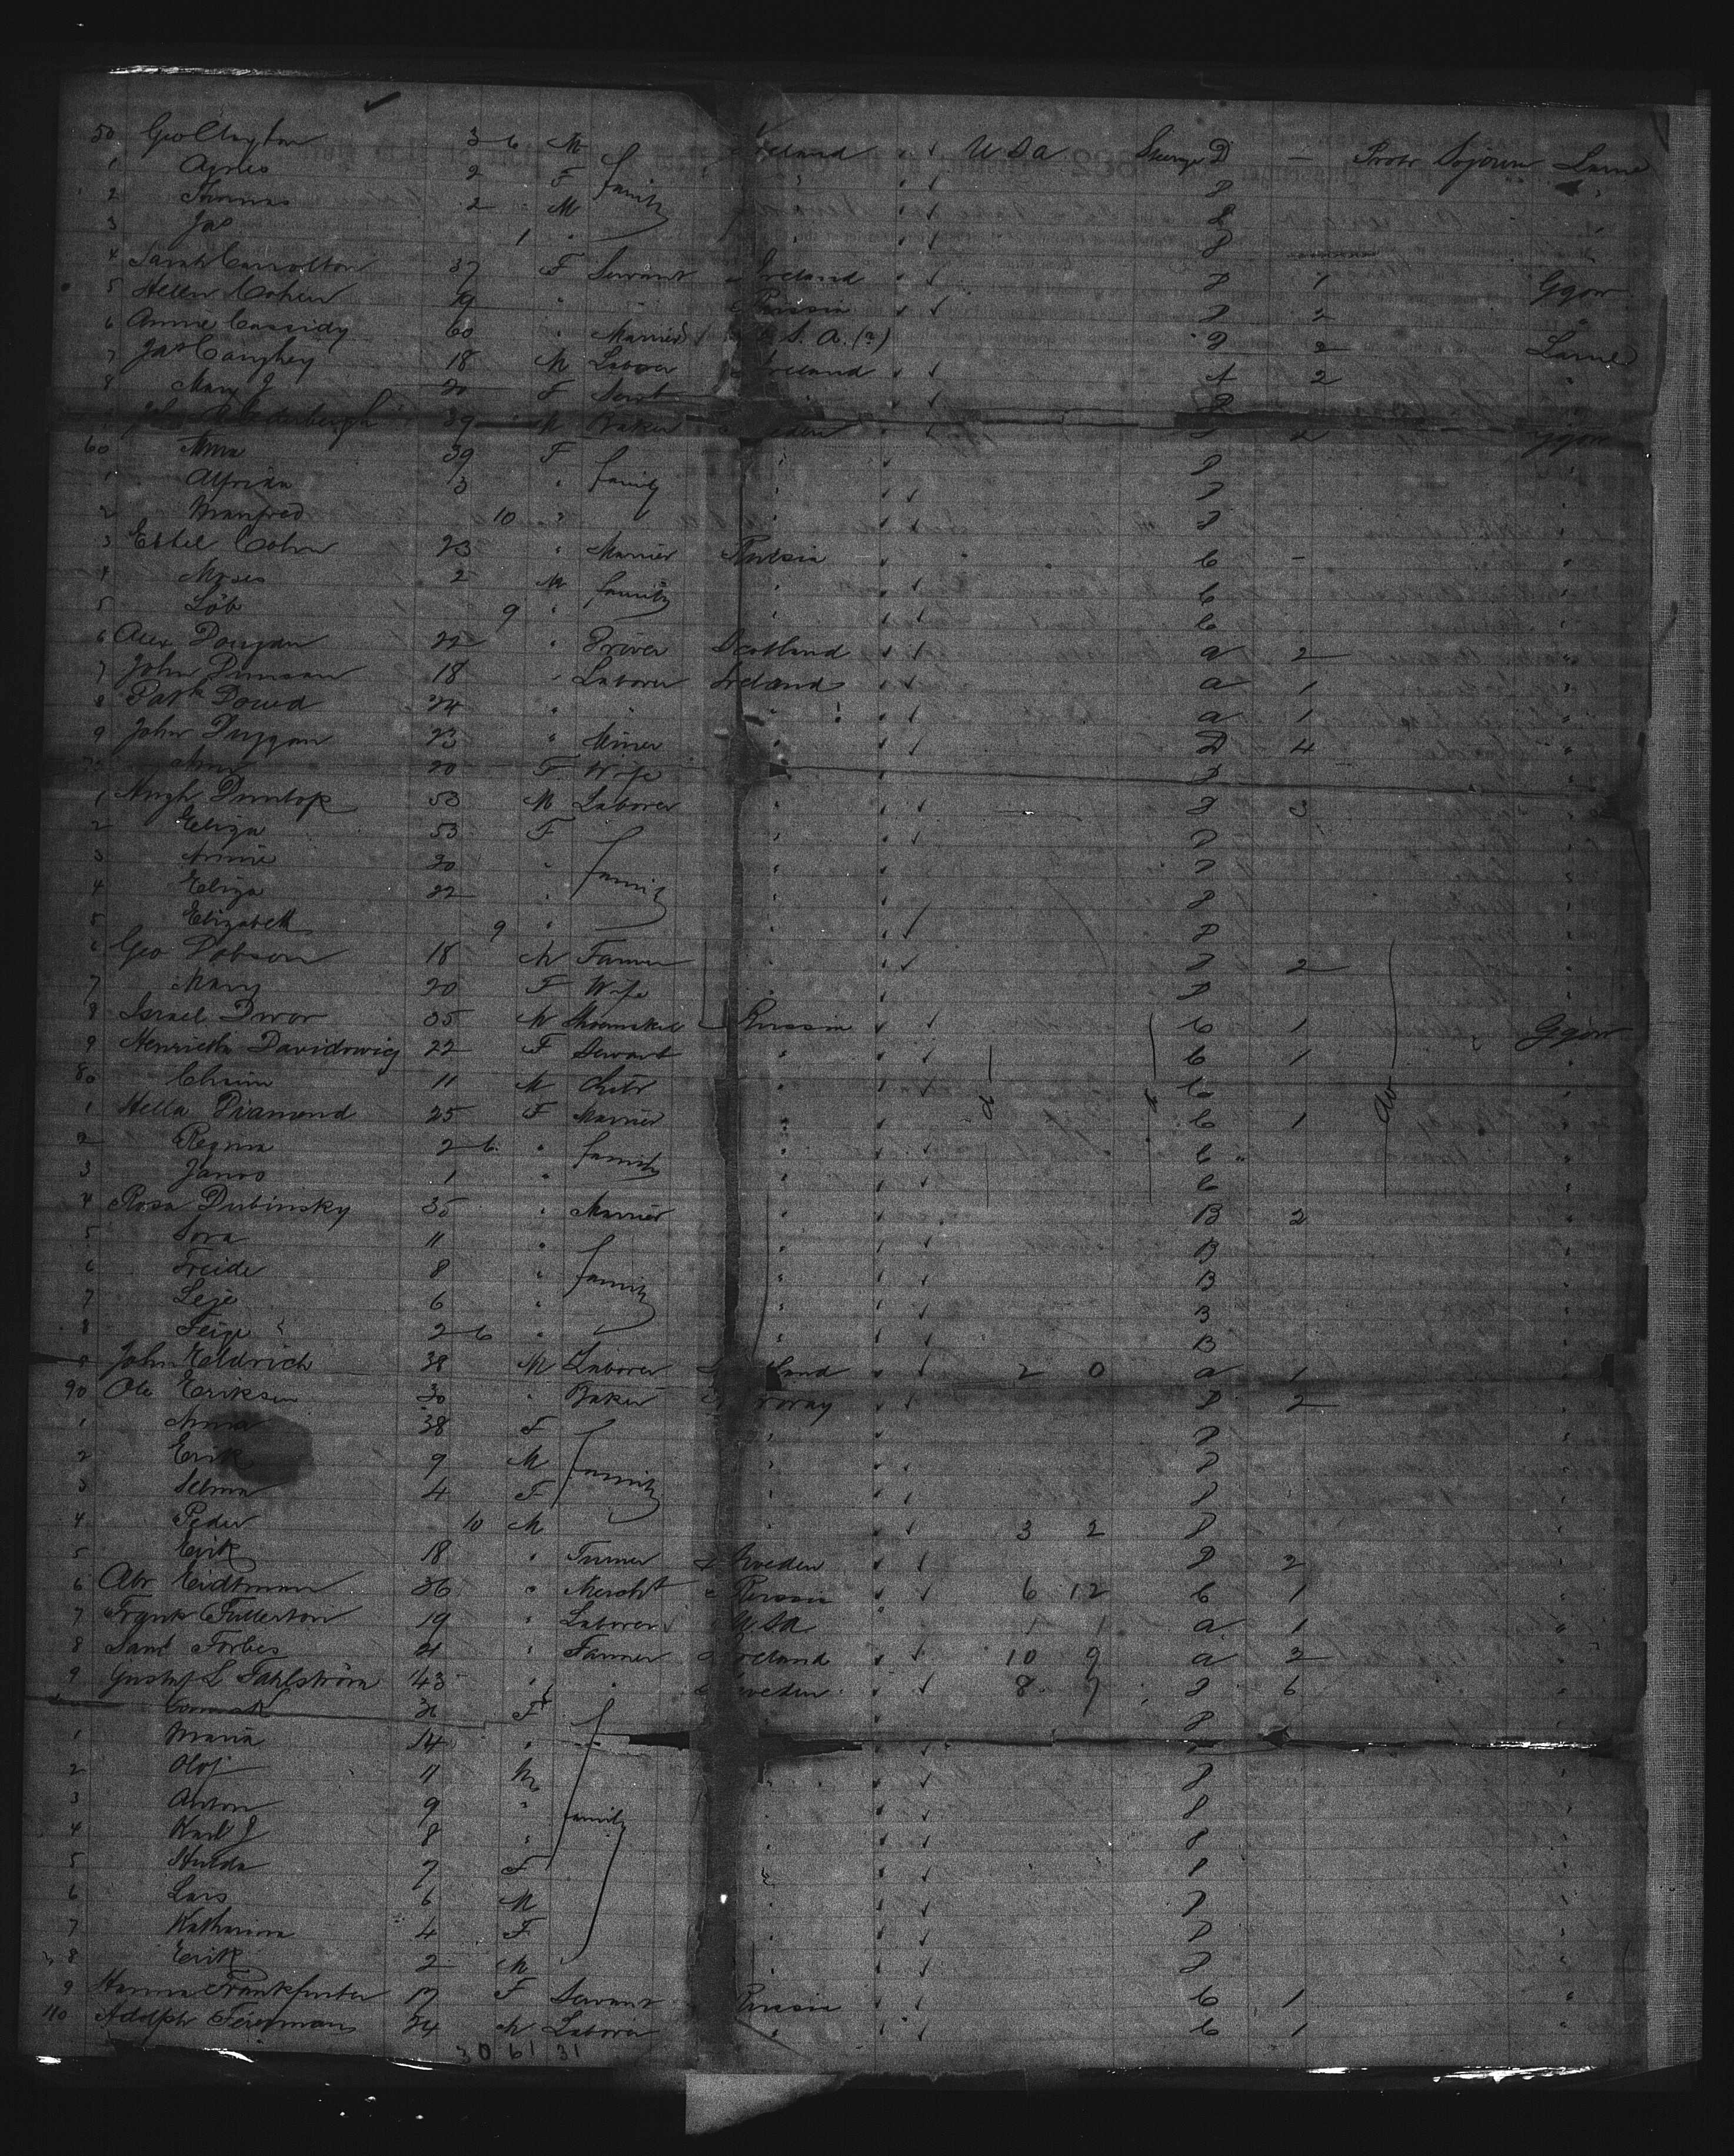 50 Geo Clayton 3 6 M Ireland U S A Steerage D — Protr Sojourn Larne
1 Agnes 2 F family " D "
2 Thomas 2 M D "
3 Jas 1 " " D "
4 Sarah Carrolton 37 F Servant Ireland D 1 Ggow
5 Hellen Cohen 19 " " Russia D 2 "
6 Annie Cassidy 60 " Married U. S. A. (?) D 2 Larne
7 Jas Caughey 18 M Laborer Ireland A 2 "
8 Mary J 20 F Servt D
39 M Baker Sweden D 2 Ggow
60 Anna 39 F " D "
1 Alfrida 3 " family " D
2 Manfred 10 " " D "
3 Ethel Cohn 23 " Married Russia C — "
4 Moses 2 M family " C "
5 Löb 9 " " C "
6 Alex Dougan 22 " Driver Scotland a 2 "
7 John Duncan 18 " Laborer Ireland a 1 "
8 Patk Dowd 24 " " " a 1 "
9 John Duggan 23 " Miner " D 4 "
20 F Wife " D "
1 Hugh Dunlop 53 M Laborer " D 3 "
2 Eliza 53 F " D "
3 Annie 20 " family " D "
4 Eliza 22 " " D "
5 Elizabeth 9 " " D "
6 Geo Dobson 18 M Farmer " D 2 "
7 Mary 20 F Wife " D "
8 Israel Dwor 35 M Shoemaker Russia C 1 Ggow
9 Henrietta Davidowicz 22 F Servant " C 1 "
80 Chaim 11 M " C "
1 Hella Diamond 25 F Married " C 1 "
2 Regina 2 6 " family " C "
3 Janos 1 " " C "
4 Rosa Dubinsky 35 " Married " B 2 "
5 Sora 11 " " B "
6 Freide 8 " family " B "
7 Leje 6 " " B "
8 Feige 2 6 " " B "
9 John Eldrich 38 M Laborer 2 0 a 1 "
90 Ole Eriksen 30 " Baker Norway D 2 "
1 Anna 38 F " D "
2 Erik 9 M family " D "
3 Selma 4 F " D "
4 Peder 10 M " 3 2 D "
5 Erik 18 " Turner Sweden D 2 "
6 Abr Eidtman 36 " Mercht Russia 6 12 C 1 "
7 Frank Fullerton 19 " Laborer U S A 1 1 a 1 "
8 Saml Forbes 21 " Farmer Ireland 10 9 a 2 "
9 Gustaf L Fahlström 43 " " Sweden 8 7 D 6 "
F D
1 Maria 14 "
2 Olof 11 M " D "
3 Anton 9 " family " D "
4 Karl J 8 " " D "
5 Hulda 7 F " D "
6 Lars 6 M " D "
7 Katharina 4 F " D "
8 Erik 2 M " D "
9 Hanna Frankfurter 17 F Servant Russia C 1 "
110 Adolph Feierman 24 M Laborer " C 1 "
30 61 31